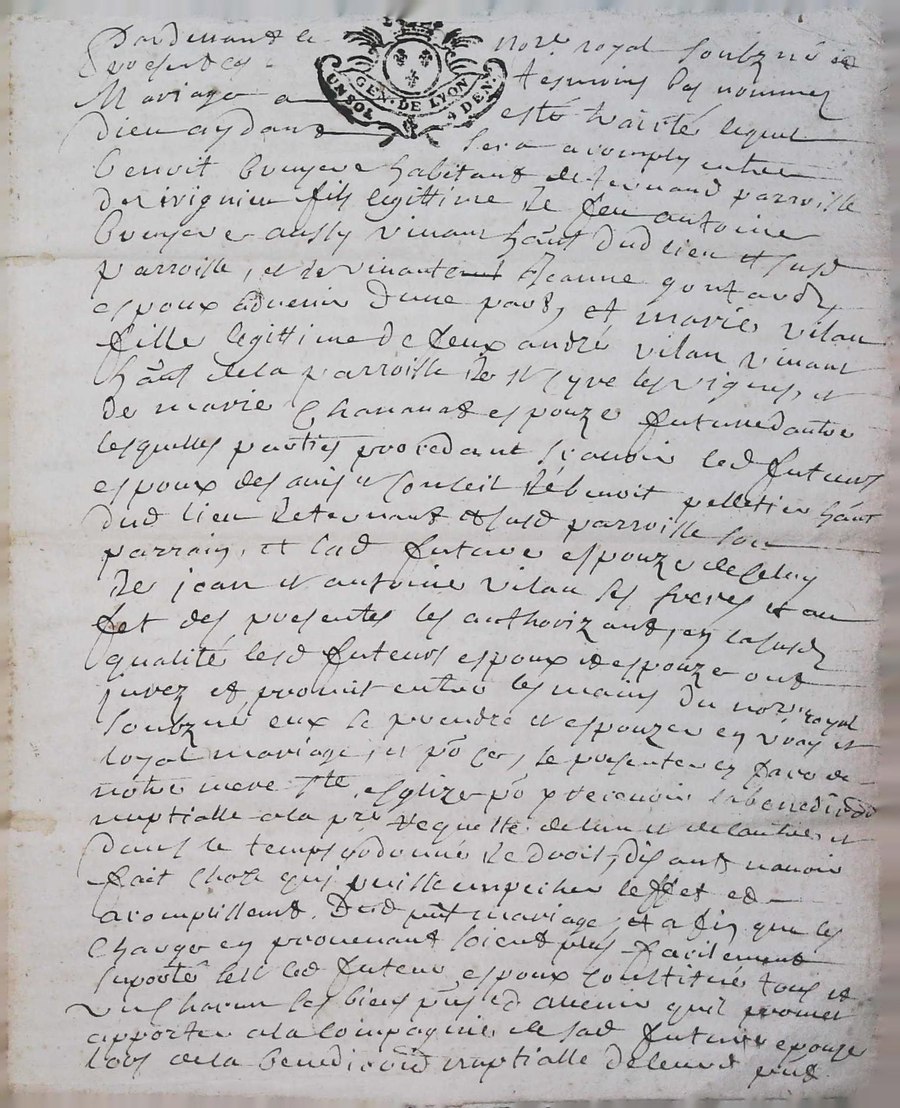 Pardevant le nore royal soubzné et
presentes tesmoins bas nommez
GEN. DE LYON
UN SOL 4 DEN.
Mariage a esté traité lequel
dieu aydant sera acomply entre
benoit bruyere habitant de ternand parroisse
fils legittime de feu antoine
bruyere aussy vivant hãnt dud lieu et susd
parroisse, et de vivante Jeanne gontard
espoux advenir dune part, et marie vilan
fille legittime de feux andré vilan vivant
hãnt de la parroisse de st Cyre les vignes, et
de marie espouze future dautre
lesquelles parties procedant scavoir led futeur
espoux des avis et conseil de benoit pelletier hãnt
dud lieu de ternant et susd parroisse son
parrain, et lad future espouze de celuy
de jean et antoine vilan ses freres et au
fet des presentes les authorizant, en lasusd
qualité lesd futeurs espoux et espouze ont
jurez et promit entre les mains du nore royal
soubzné eux se prendre et espouzer en vray et
loyal mariage, et põ ce, se presenter en face de
notre mere ste esglize põ y recevoir la benediõn
nuptialle a la pre requeste de lun et de lautre, et
dans le temps ordonné de droit, disant navoir
fait choze qui puisse enpecher leffet et
acomplissement dud pñt mariage, et afin que les
charges en provenant soient plus facilement
suporté led futeur espoux constitué tous et
un chacun ses biens pñs et avenir quil promet
apporter a la compagnie de sad future epouze
lors de la benediõn nuptialle de leurd pñt